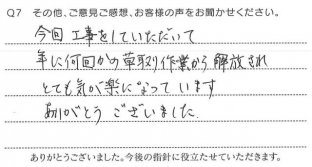 Q7 その他、ご意見ご感想、お客様の声をお聞かせください。
今回工事をしていただいて
年に何回かの草取り作業から解放され
とても気が楽になっています
ありがとうございました.
ありがとうございました。今後の指針に役立たせていただきます。